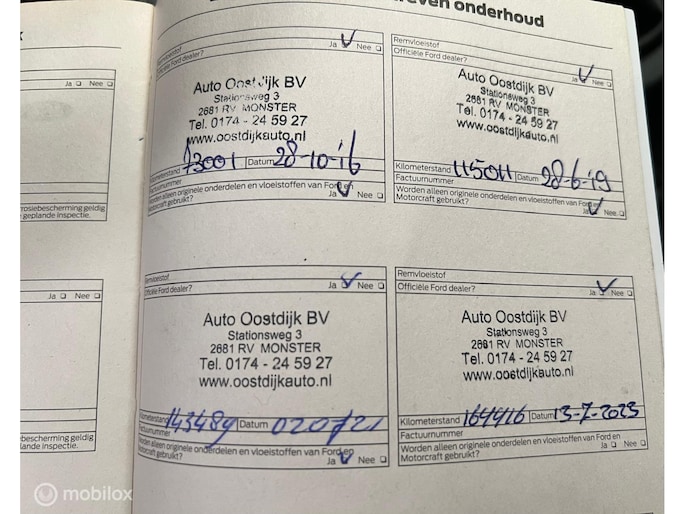 reven onderhoud
Ja Nee
rosiebescherming geldig
geplande inspectie.
Ja Nee
bescherming geldig
lande inspectie.
Remvloeistof
Officiële Ford dealer?
Ja Nee
Auto Oostdijk BV
Stationsweg 3
2681 RV MONSTER
Tel. 0174 - 24 59 27
www.oostdijkauto.nl
Kilometerstand 73001 Datum 28-10-16
Factuurnummer
Worden alleen originele onderdelen en vloeistoffen van Ford en
Motorcraft gebruikt? Ja Nee
Remvloeistof
Officiële Ford dealer?
Ja Nee
Auto Oostdijk BV
Stationsweg 3
2681 RV MONSTER
Tel. 0174 - 24 59 27
www.oostdijkauto.nl
Kilometerstand 115011 Datum 28-6-19
Factuurnummer
Worden alleen originele onderdelen en vloeistoffen van Ford en
Motorcraft gebruikt? Ja Nee
Remvloeistof
Officiële Ford dealer? Ja Nee
Auto Oostdijk BV
Stationsweg 3
2681 RV MONSTER
Tel. 0174 - 24 59 27
www.oostdijkauto.nl
Kilometerstand 143489 Datum 020721
Factuurnummer
Worden alleen originele onderdelen en vloeistoffen van Ford en
Motorcraft gebruikt? Ja Nee
Remvloeistof
Officiële Ford dealer? Ja Nee
Auto Oostdijk BV
Stationsweg 3
2681 RV MONSTER
Tel. 0174 - 24 59 27
www.oostdijkauto.nl
Kilometerstand 164416 Datum 13-7-2023
Factuurnummer
Worden alleen originele onderdelen en vloeistoffen van Ford en
Motorcraft gebruikt? Ja Nee
mobilox